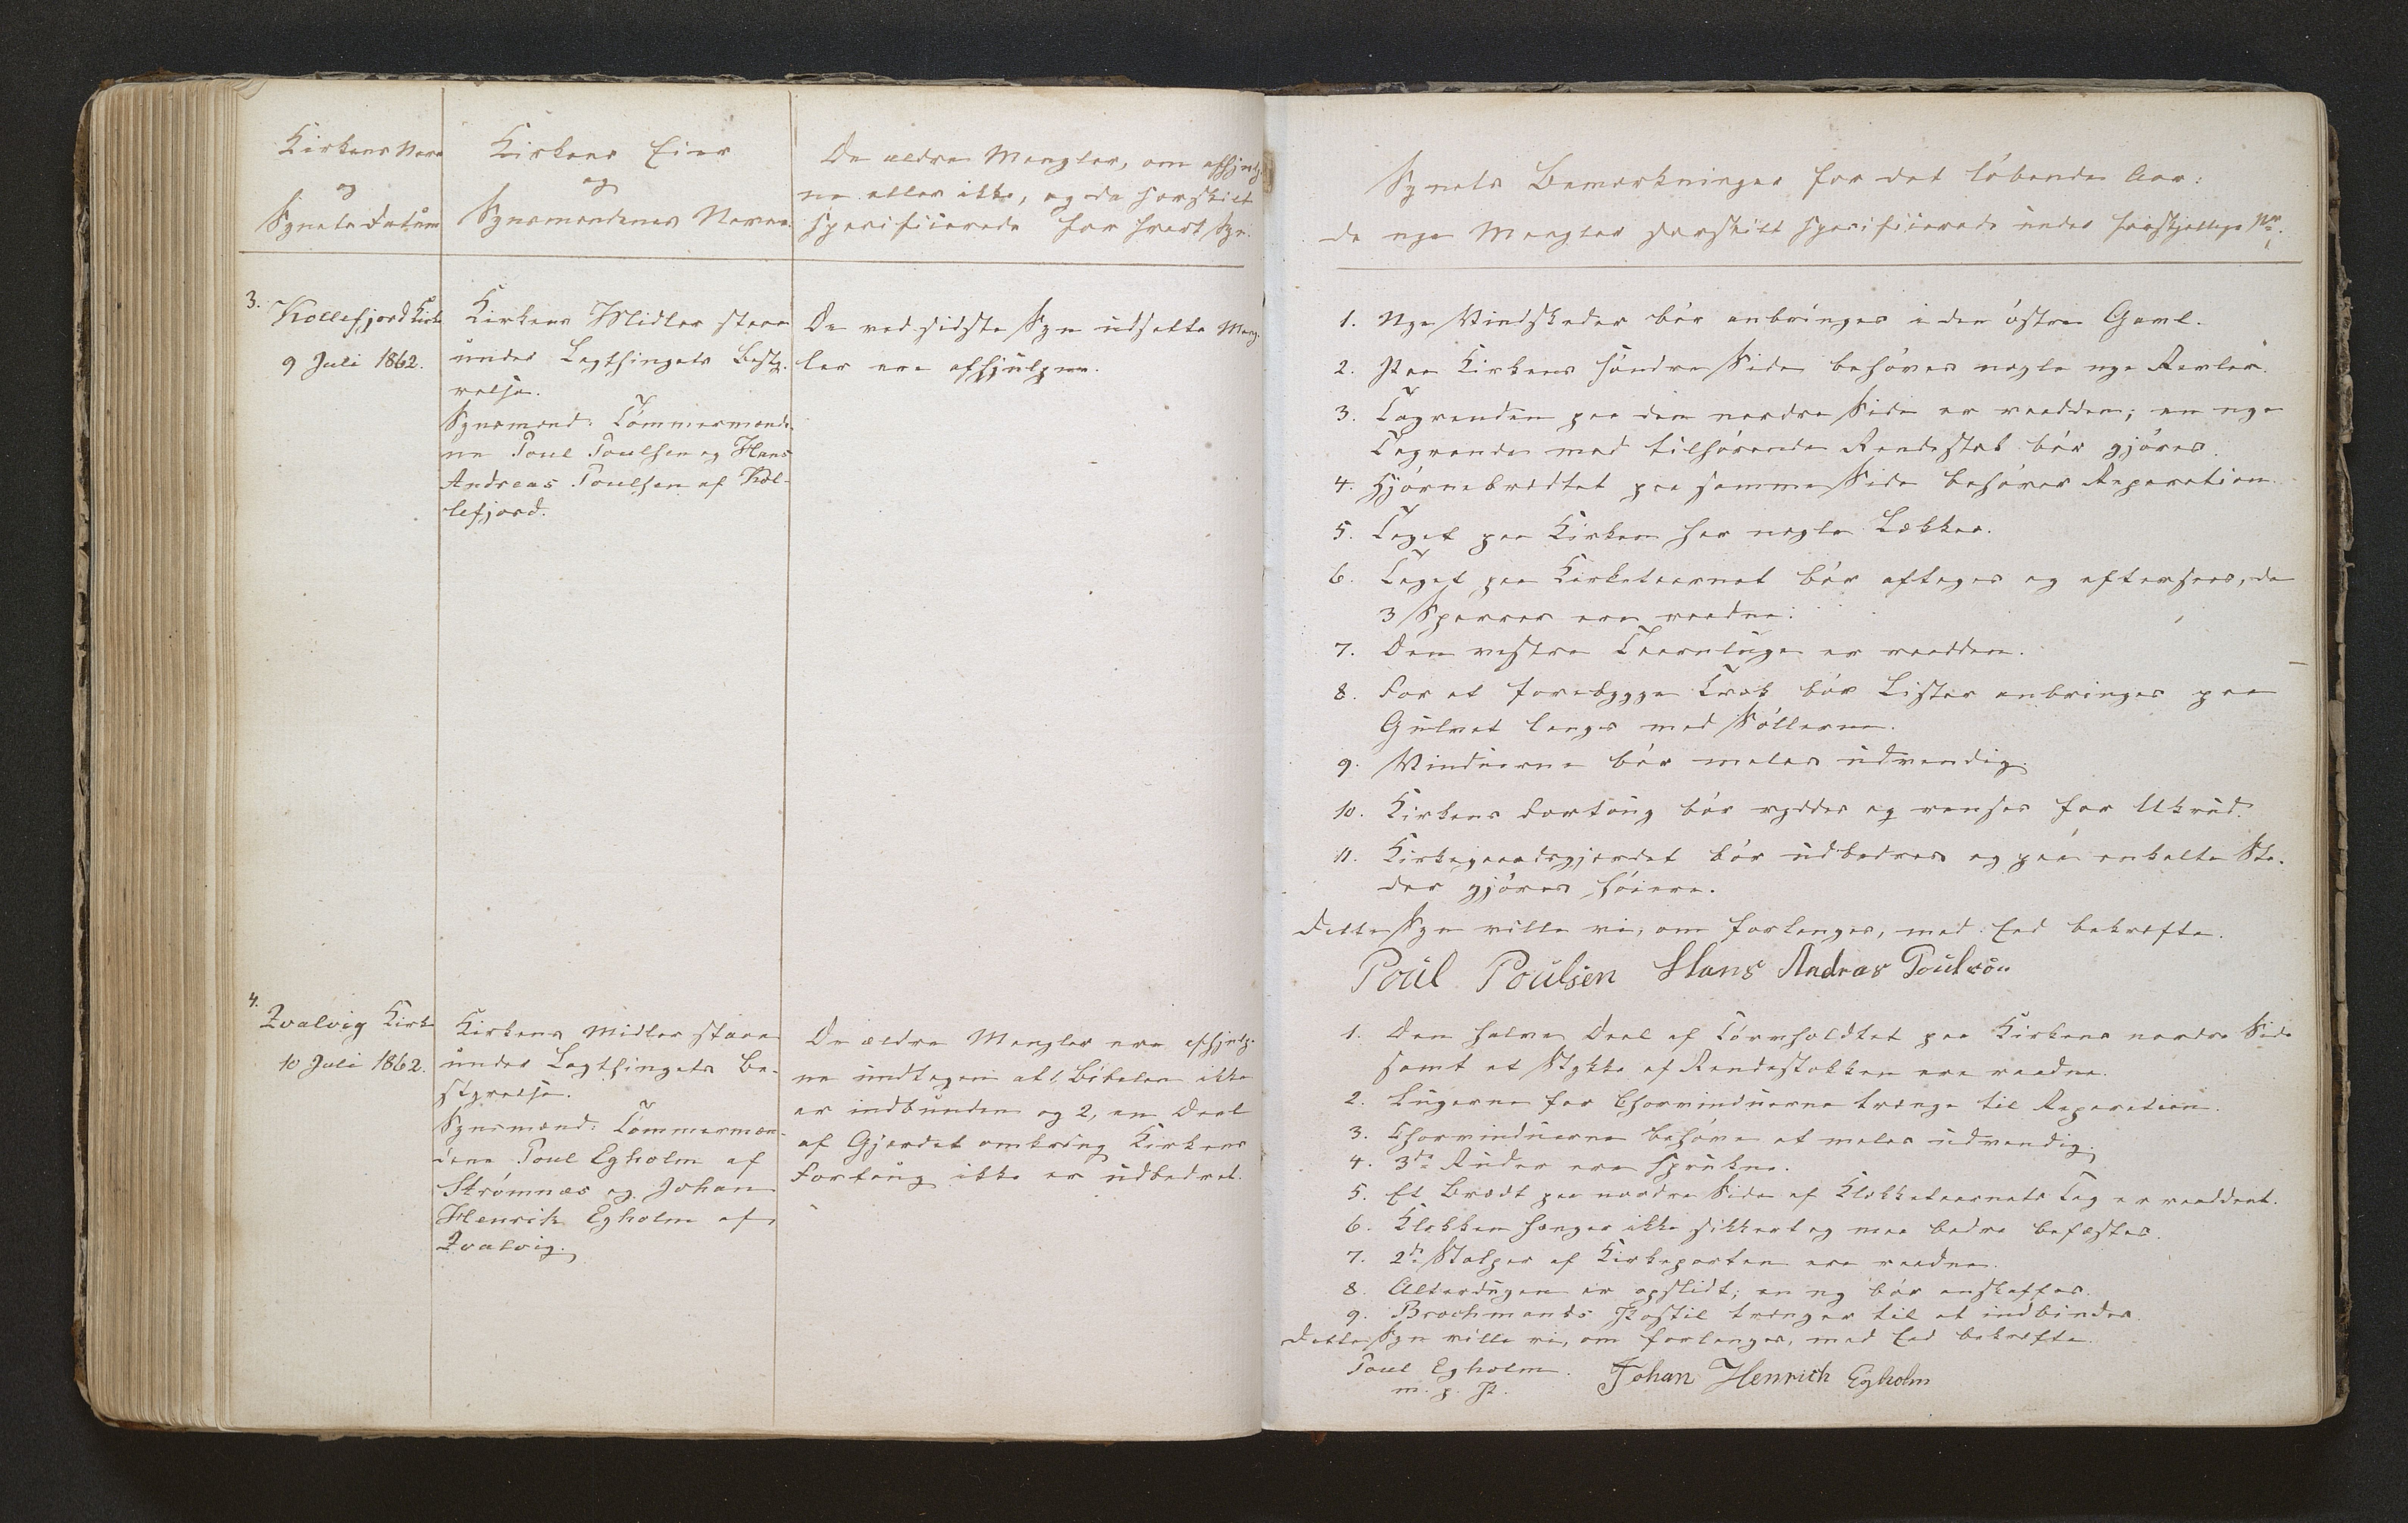 Kirkens Navn
og
Synets Datum
Kirkens Eier
og
Synsmændenes Navne.
De ældre Mangler, om afhjulp-
ne eller ikke, og da særskilt
specificerede for hvert Syn.
3.
Kollefjord Kirke
9 Juli 1862.
Kirkens Midler staae
under Lagthingets Besty-
relse.
Synsmænd: Tømmermænde-
ne Poul Poulsen og Hans
Andreas Poulsen af Kol-
lefjord.
De ved sidste Syn udsatte Mang-
ler ere afhjulpne.
4.
Qvalvig Kirke
10 Juli 1862.
Kirkens Midler staae
under Lagthingets Be-
styrelse.
Synsmænd: Tømmermæn-
dene Poul Egholm af
Strømnæs og Johan
Henrik Egholm af
Qvalvig.
De ældre Mangler ere afhjulp-
ne undtagen at 1, Bibelen ikke
er indbunden og 2, en Deel
af Gjerdet omkring Kirkens
Fortoug ikke er udbedret.
Synets Bemærkninger for det løbende Aar:
de nye Mangler særskilt specificerede under forskjellige Nr.
1. Nye Vindskeder bør anbringes i den østre Gavl.
2. Paa Kirkens søndre Side behøves nogle nye Revler.
3. Tagrenden paa den nordre Side er raadden; en nye
Tagrende med tilhørende Rendestok bør gjøres.
4. Hjørnebrædtet paa samme Side behøver Reparation.
5. Taget paa Kirken har nogle Lækker.
6. Taget paa Kirketaarnet bør aftages og eftersees, da
3 Sperrer ere raadne.
7. Den vestre Taarnluge er raadden.
8. For at forebygge Træk bør Lister anbringes paa
Gulvet langs med Sóllerne.
9. Vinduerne bør males udvendig.
10. Kirkens Fortoug bør ryddes og renses for Ukrud.
11. Kirkegaardsgjerdet bør udbedres og paa enkelte Ste-
der gjøres høiere.
Dette Syn ville vi, om forlanges, med Eed bekræfte.
Poul Poulsen Hans Andreas Poulsøn
1. Den halve Deel af Tørvholdtet paa Kirkens nordre Side
samt et Stykke af Rendestokken ere raadne.
2. Lugerne for Chorvinduerne trænge til Reparation.
3. Chorvinduerne behøve at males udvendig.
4. 3de Ruder ere sprukne.
5. Et Brædt paa nordre Side af Klokketaarnets Tag er raaddent.
6. Klokken hænger ikke sikkert og maa bedre befæstes.
7. 2de Stolper af Kirkeporten ere raadne.
8. Alterdugen er opslidt; en ny bør anskaffes.
9. Brochmands Postil trænger til at indbindes.
Dette Syn ville vi, om forlanges, med Eed bekræfte.
Poul Egholm. Johan Henrich Egholm
m. p. P.